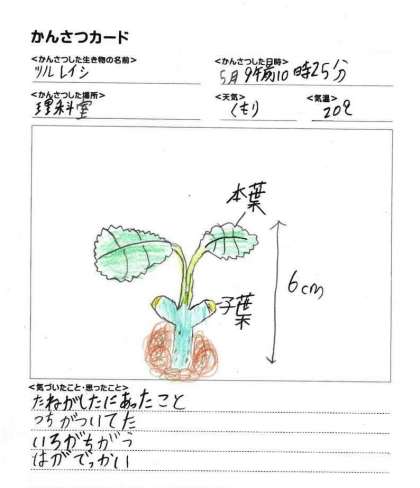 かんさつカード
<かんさつした生き物の名前> <かんさつした日時>
ツルレイシ 5月9午前10時25分
<かんさつした場所> <天気> <気温>
理科室 くもり 20℃
本葉
6cm
子葉
<気づいたこと・思ったこと>
たねがしたにあったこと
つちがついてた
いろがちがう
はがでっかい